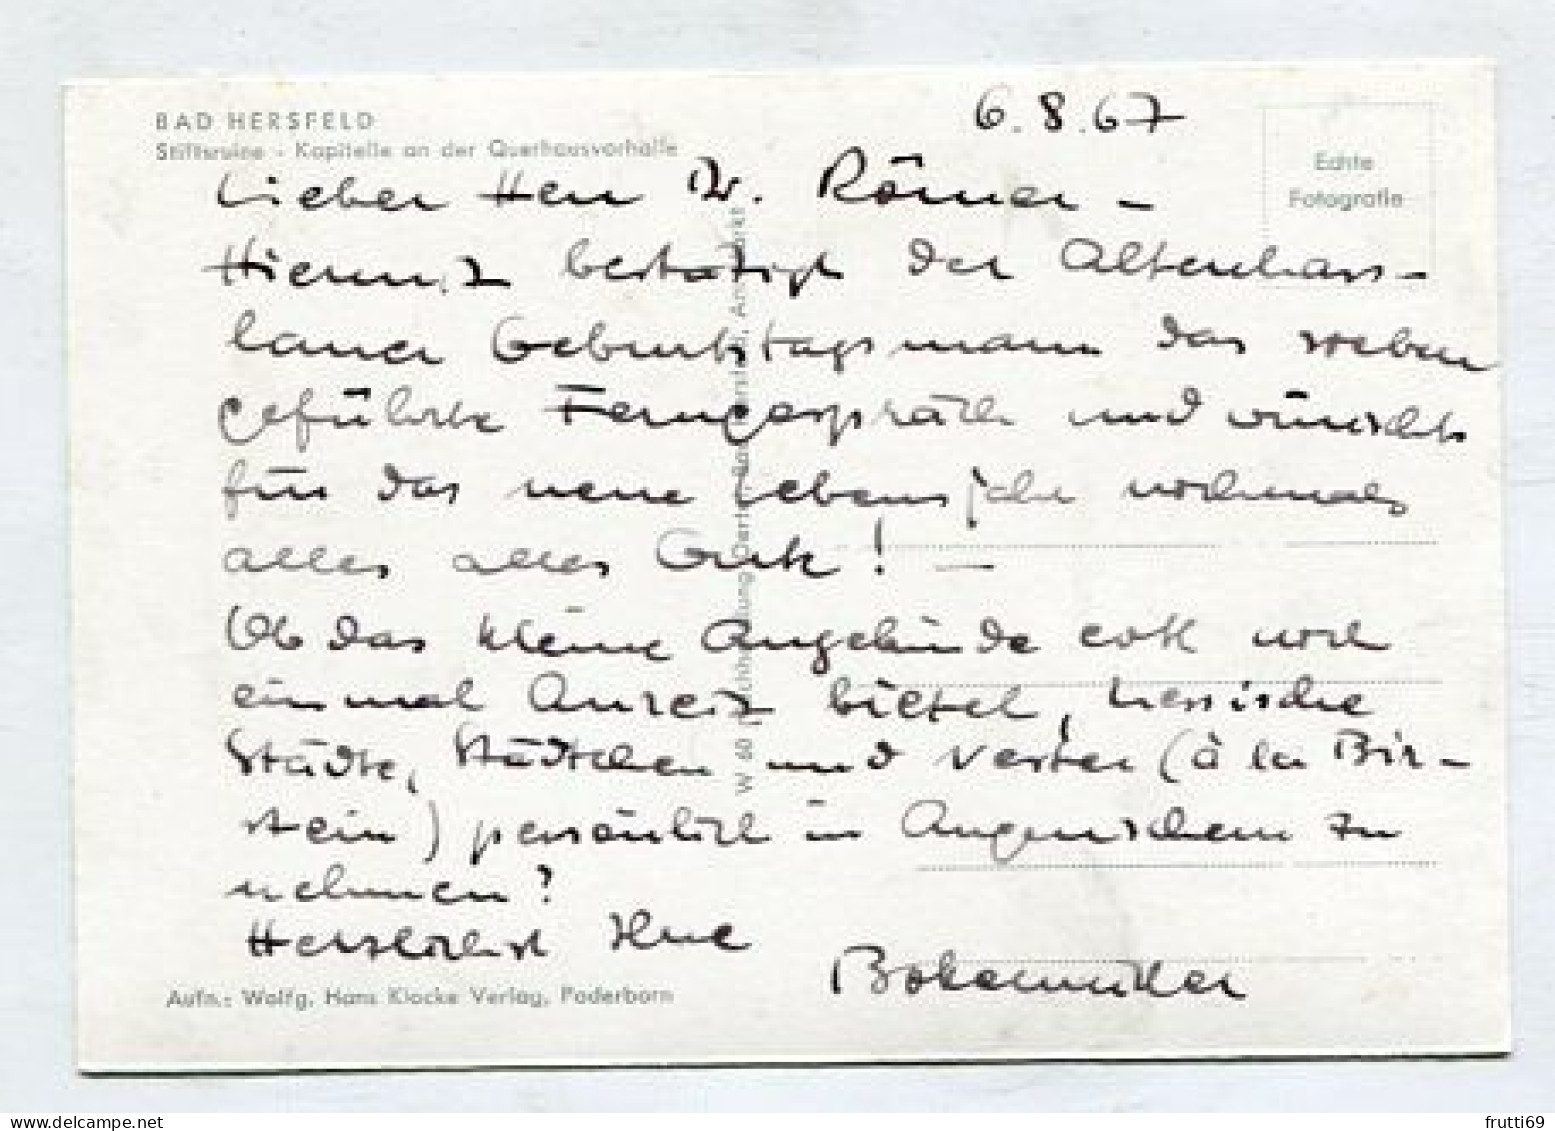 BAD HERSFELD
Stiftsruine - Kapitelle an der Querhausvorhalle
6.8.67
Echte
Fotografie
Lieber Herr Dr. Römer -
Hiermit bestätigt der Altenhass-
lauer Geburtstagsmann das soeben
geführte Ferngespräch und wünscht
für das neue Lebensjahr nochmals
alles alles Gute! -
Ob das kleine Angebinde evtl noch
einmal Anreiz bietet, hessische
Städte, Städtchen und Nester (à la Bir-
stein) persönlich in Augenschein zu
nehmen?
Herzlichst Ihre
W 60
Aufn.: Wolfg. Hans Klocke Verlag, Paderborn
frutti69
delcampe.net